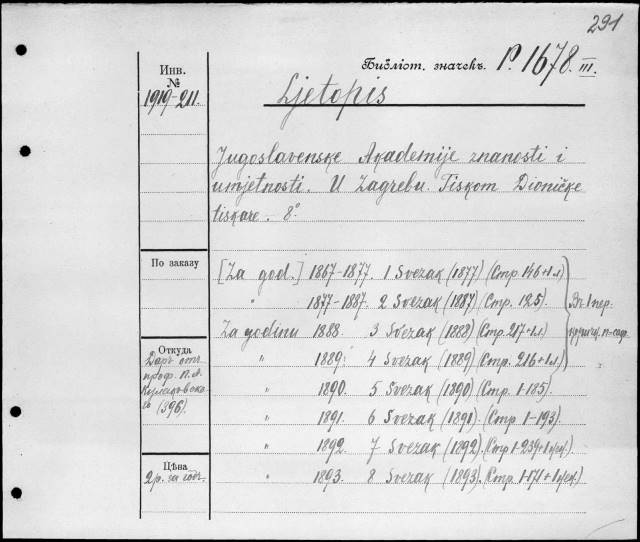 291
Библіот. значекъ. P. 1678. III.
Инв.
№
1919-211.
Ljetopis
Jugoslavenske Akademije znanosti i
umjetnosti. U Zagrebu. Tiskom Dioničke
tiskare. 8º.
По заказу
[Za god.] 1867-1877. 1 Svezak (1877) (Стр. 146+1 л)
" 1877-1887. 2 Svezak (1887) (Стр. 125).
Въ 1 пер.
Za godinu 1888. 3 Svezak (1888) (Стр. 217+1 л)
" 1889. 4 Svezak (1889) (Стр. 216+1 л)
" 1890. 5 Svezak (1890) (Стр. 1-185).
" 1891. 6 Svezak (1891). (Стр. 1-193).
" 1892. 7 Svezak (1892) (Стр. 1-239+
" 1893. 8 Svezak (1893). (Стр. 1-171+
Откуда
Даръ отъ
проф. П. А.
(396).
Цѣна
2 р. за годъ.